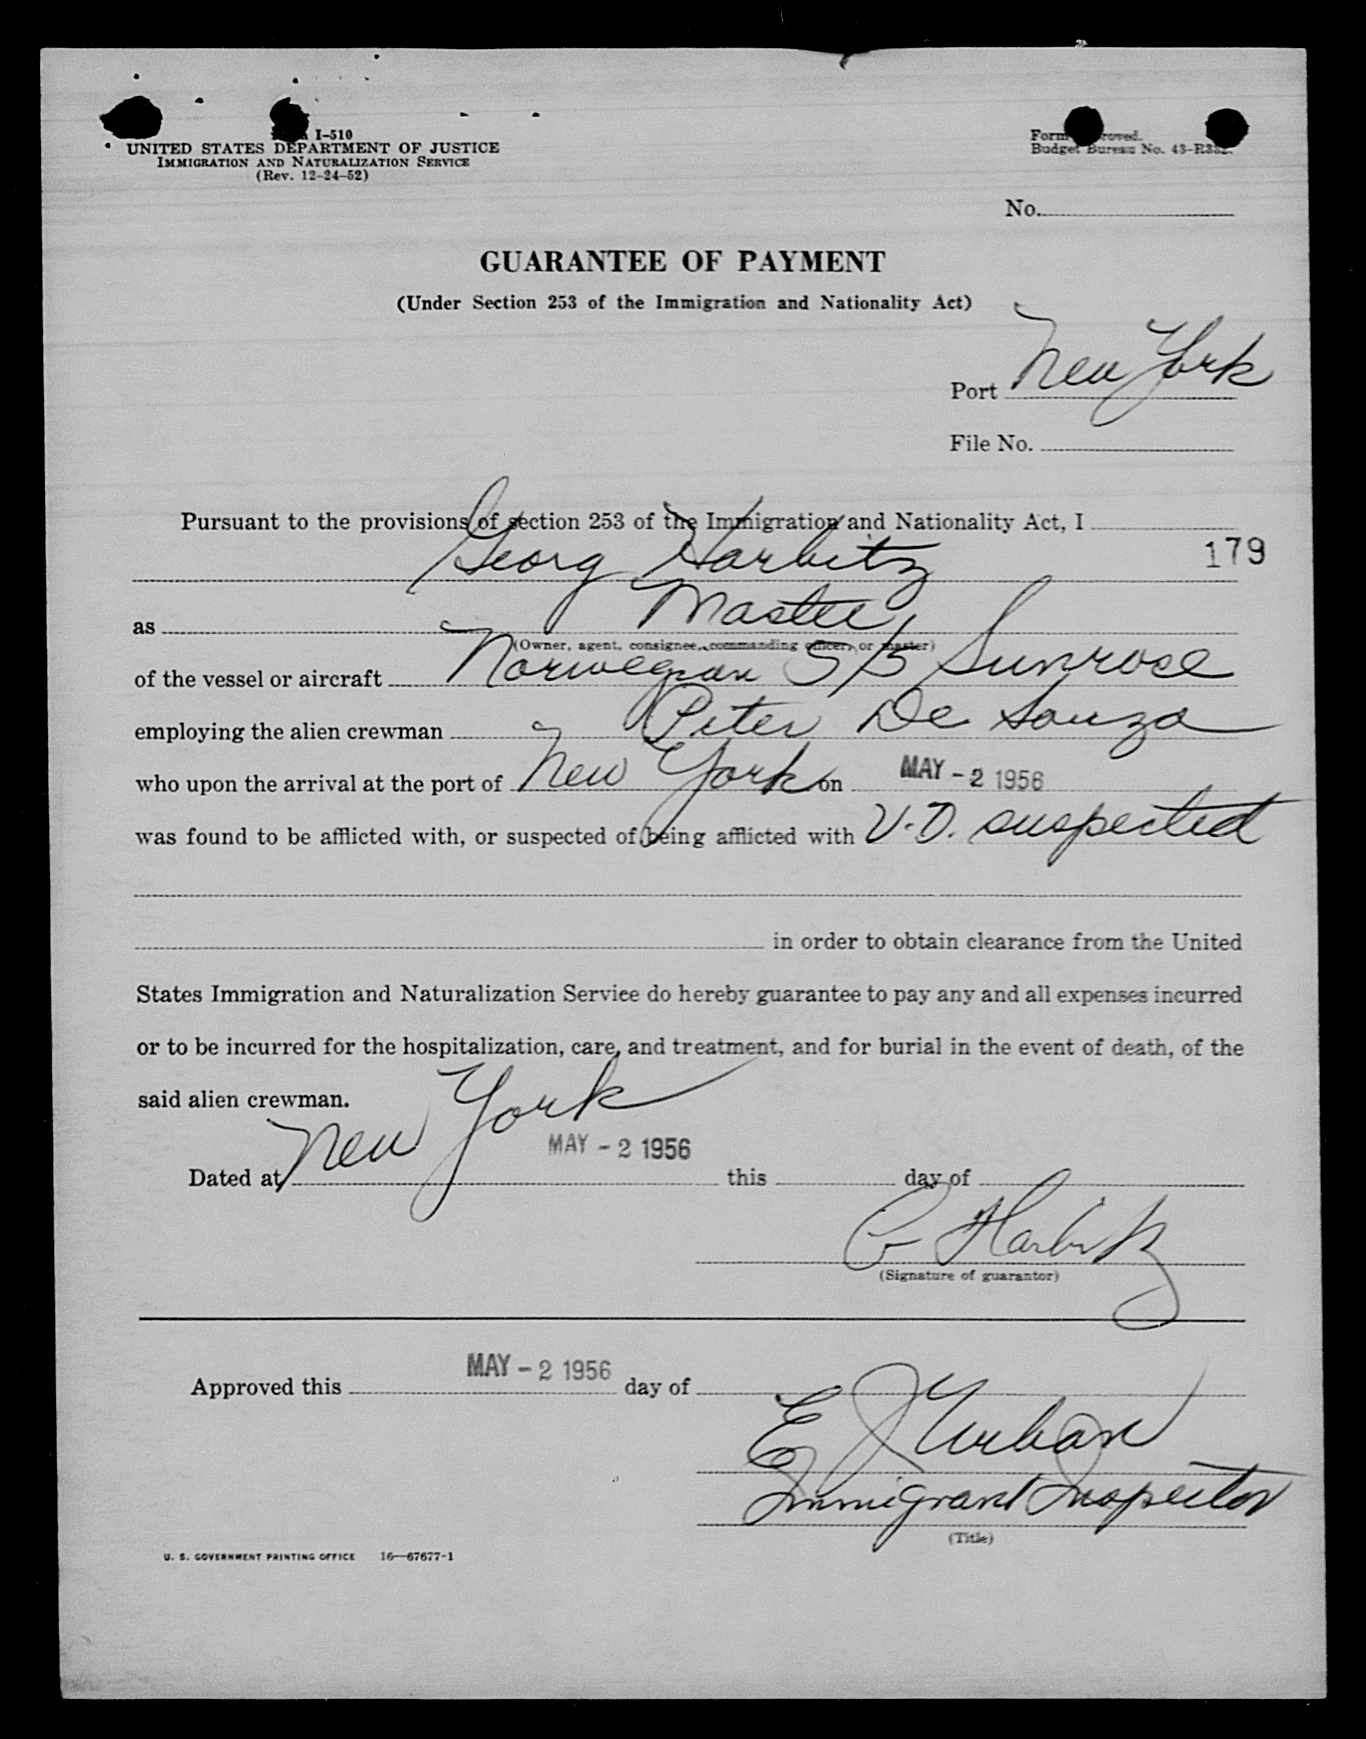 I-510
UNITED STATES DEPARTMENT OF JUSTICE
IMMIGRATION AND NATURALIZATION SERVICE
(Rev. 12-24-52)
Budget Bureau No. 43-R3
No.
GUARANTEE OF PAYMENT
(Under Section 253 of the Immigration and Nationality Act)
Port New York
File No.
Pursuant to the provisions of section 253 of the Immigration and Nationality Act, I
Georg Harbitz 179
as Master
(Owner, agent, consignee, commanding officer, or master)
of the vessel or aircraft Norwegian S/S Sunrose
employing the alien crewman Peter De Souza
who upon the arrival at the port of New York on MAY - 2 1956
was found to be afflicted with, or suspected of being afflicted with V.D. suspected
in order to obtain clearance from the United
States Immigration and Naturalization Service do hereby guarantee to pay any and all expenses incurred
or to be incurred for the hospitalization, care, and treatment, and for burial in the event of death, of the
said alien crewman.
Dated at New York MAY - 2 1956 this day of
G Harbitz
(Signature of guarantor)
Approved this MAY - 2 1956 day of
E J Urban
Immigrant Inspector
(Title)
U. S. GOVERNMENT PRINTING OFFICE 16—67677-1